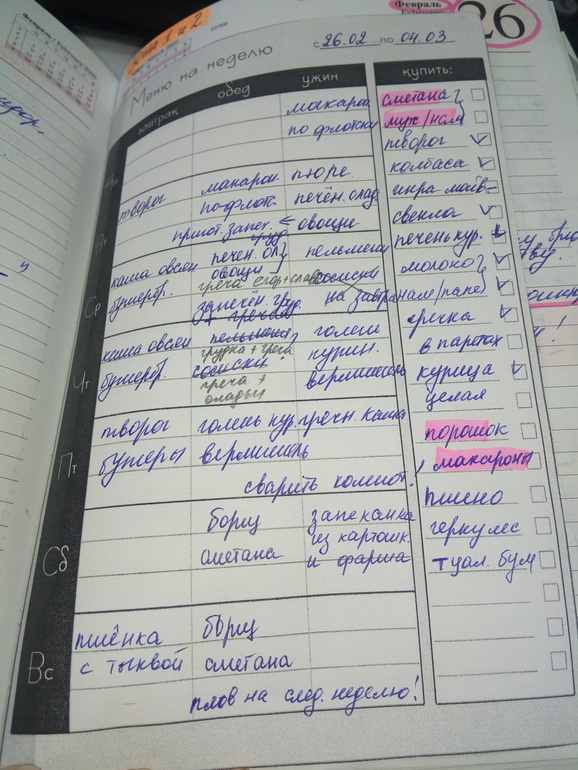 Февраль
26
с 26.02 по 04.03
Меню на неделю
завтрак обед ужин
макарон
по флотски
Вт
творог макарон пюре
по-флотс печён. олад
пригот. запек. овощи
Ср
каша овсян печен. ол пельмени
бутербр. овощи сосиски
греча
запечён. груд. на завтра
+ гречка
Чт
каша овсян пельмени голень
грудка + греча
бутербр. сосиски курин.
греча + вермишель
оладьи
Пт
творог голень кур. гречн. каша
бутеры вермишель
сварить компот!
Сб
борщ запеканка
сметана из картошк.
и фарша
Вс
пшёнка борщ
с тыквой сметана
плов на след. неделю!
купить:
сметана
муж/нам
творог
колбаса
икра
свекла
печень кур.
молоко
нам/папе
гречка
в пакетах
курица
целая
порошок
макароны
пшено
геркулес
туал. бум